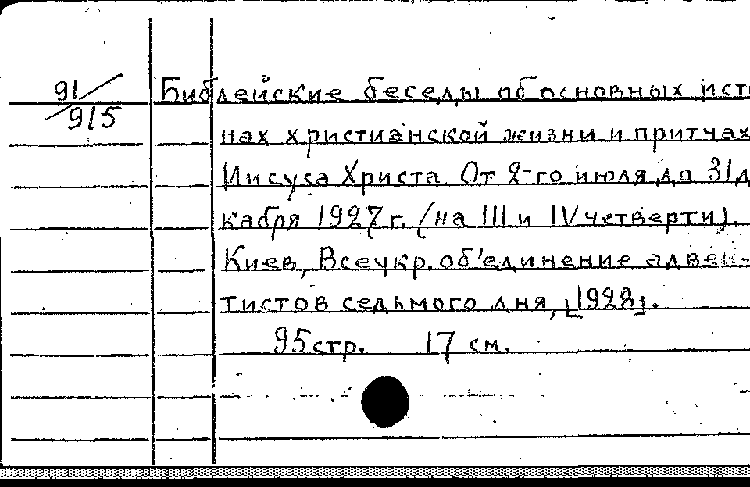 91/915 Библейские беседы об основных ист
нах христианской жизни и притчах
Иисуса Христа. От 2-го июля до 31 д
кабря 1927 г. (на III и IV четверти).
Киев, Всеукр. об'единение адвен-
тистов седьмого дня, [1928].
95 стр. 17 см.